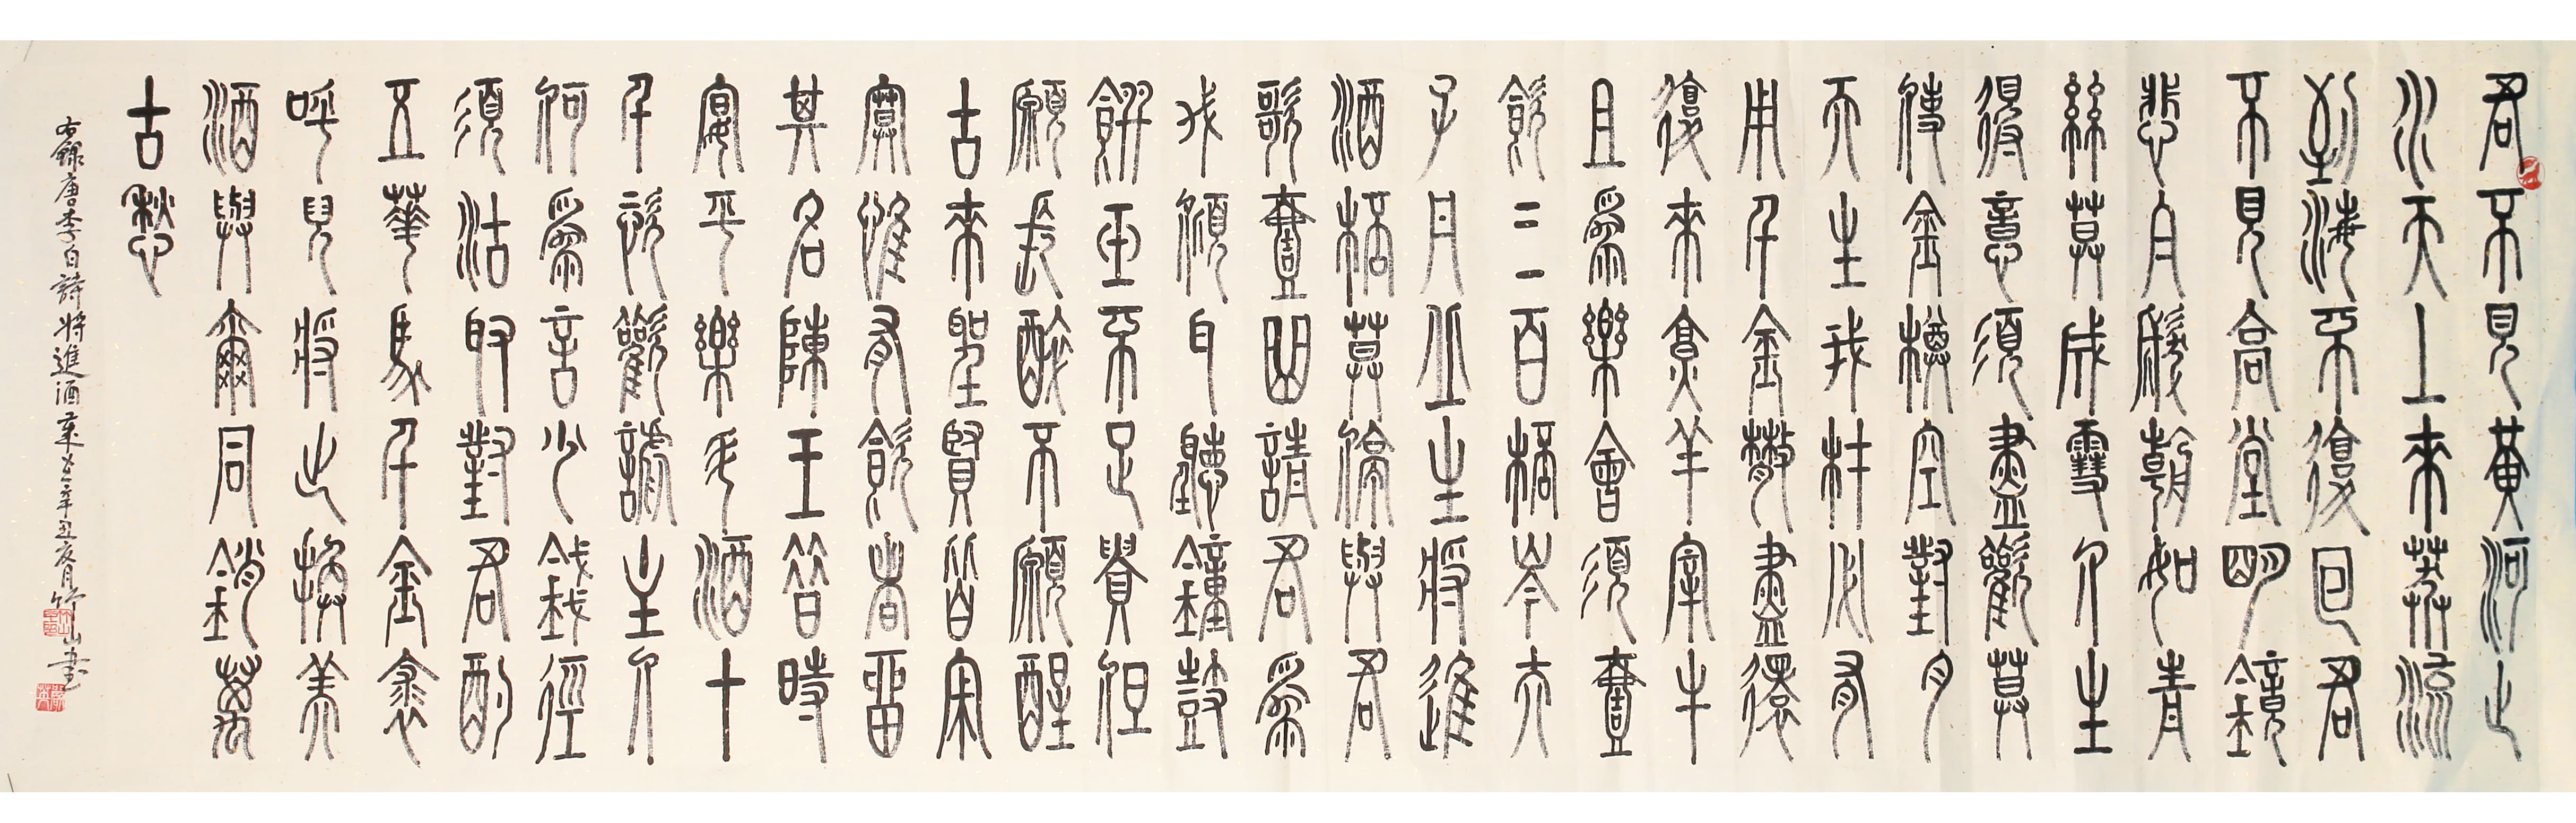 君不見黃河之
水天上來奔流
到海不復回君
不見高堂明鏡
悲白髮朝如青
絲莫成雪人生
得意須盡歡莫
使金樽空對月
天生我材必有
用千金散盡還
復來烹羊宰牛
且為樂會須壹
飲三百桮岑夫
子丹丘生將進
酒桮莫停與君
歌壹曲請君為
我傾耳聽鐘鼓
饌玉不足貴但
願長醉不願醒
古來聖賢皆寂
寞惟有飲者留
其名陳王昔時
宴平樂斗酒十
千恣歡謔主人
何為言少錢徑
須沽取對君酌
五華馬千金裘
呼兒將出換美
酒與爾同銷萬
古愁
右錄唐李白詩將進酒歲辛丑月竹山書